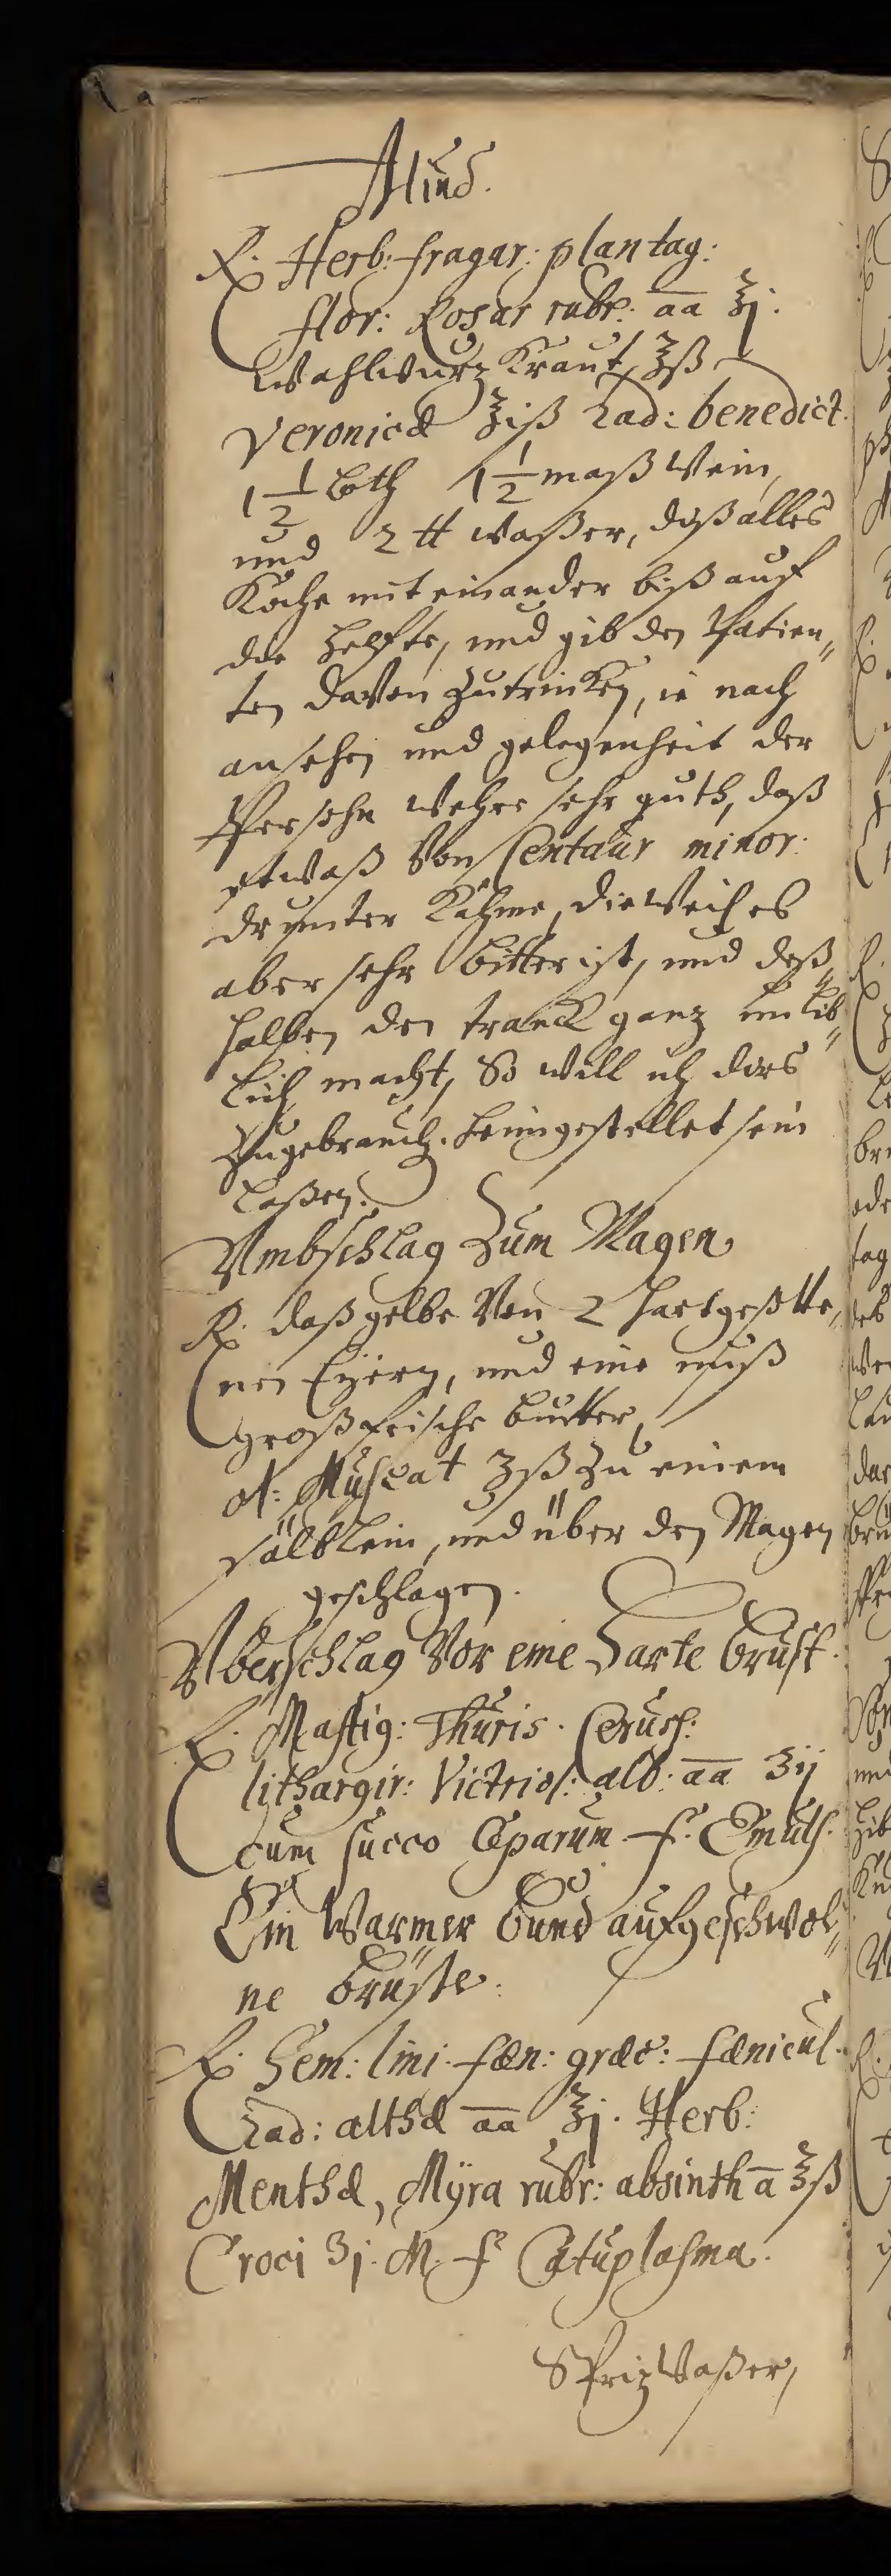 Alius.
℞. Herb: fragar: plantag:
flor: Rosar rubr: aa ℥j.
Wahlwurz Kraut, ℥ß
Veronicæ ℥iß Rad: benedict.
1 1/2 Loth 1 1/2 maß Wein,
und 2 ℔ waßer, daß alles
Koche mit einander biß auf
die helfte, und gib den Patien„
ten davon zutrincken, ie nach
ansehen und gelegenheit der
Persohn wehre sehr guth, daß
etwaß Von Centaur minor:
drunter Kähme, dieweil es
aber sehr bitter ist, und deß„
halben den tranck ganz unlieb„
lich macht, So will ich dies
Zugebrauch. heimgestellet sein
laßen.
Umbschlag Zum Magen
℞. daß gelbe Von 2 hartgesotte„
nen Eÿern, und eine nuß
groß frische butter,
ol: Muscat ʒß Zu einem
sälblein, und über den Magen
geschlagen.
Uberschlag Vor eine Harte brust.
℞. Mastig: Thuris. Ceruss:
lithargir: Victriol: alb: aa ʒij
cum succo Ceparum. f. Emuls.
Ein Warmer bund aufgeschwol„
ne brüste.
℞. Sem: lini. fæn: græc: fænicul.
Rad: althæ aa ℥j. Herb:
Menthæ, Mÿra rubr: absinth a ℥ß
Croci ʒj. M. f. Catuplasma.
SPrizWaßer,